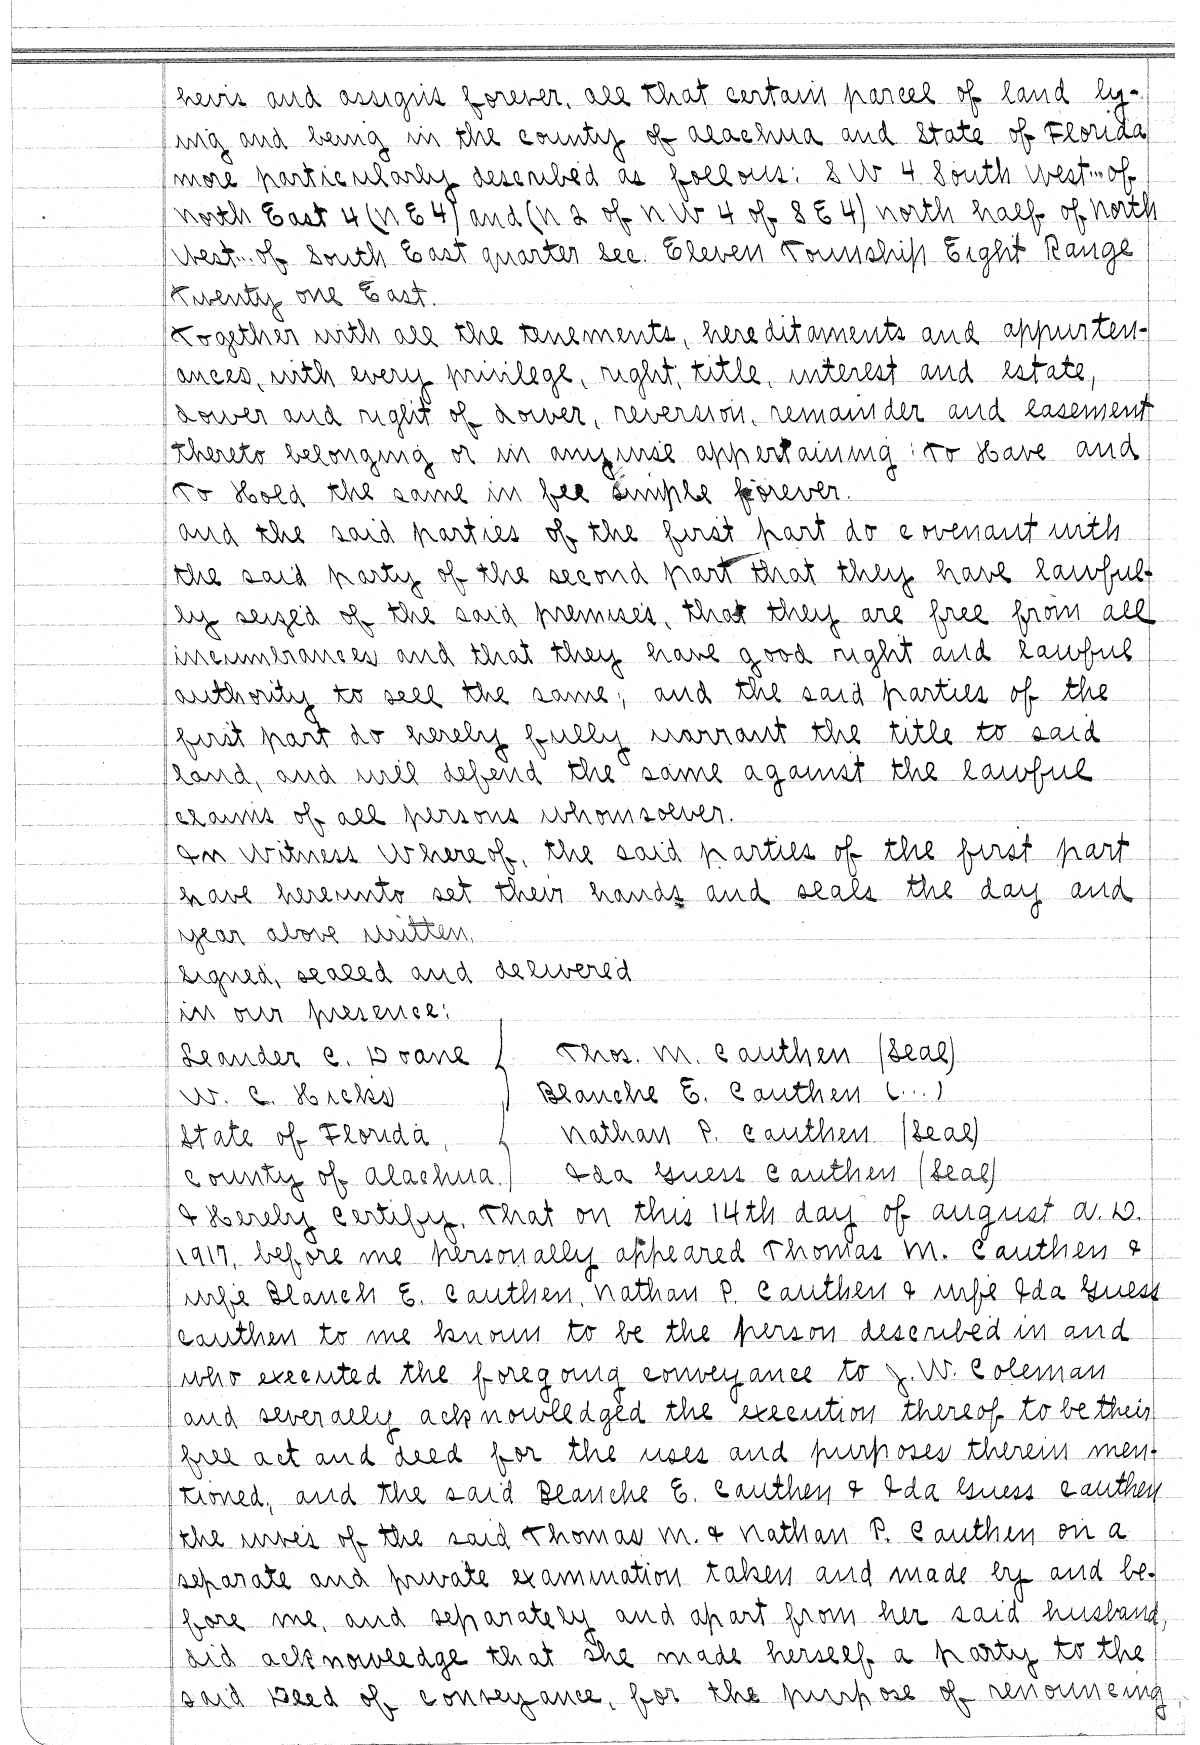 heirs and assigns forever, all that certain parcel of land ly-
ing and being in the county of Alachua and State of Florida
more particularly described as follows: S W 4 South West... of
North East 4 (N E 4) and (N 2 of N W 4 of S E 4) north half of North
West... of South East quarter Sec. Eleven Township Eight Range
Twenty one East.
Together with all the tenements, hereditaments and appurten-
ances, with every privilege, right, title, interest and estate,
dower and right of dower, reversion, remainder and easement
thereto belonging or in anywise appertaining: To Have and
To Hold the same in fee simple forever.
and the said parties of the first part do covenant with
the said party of the second part that they have lawful-
ly seized of the said premises, that they are free from all
incumbrances and that they have good right and lawful
authority to sell the same; and the said parties of the
first part do hereby fully warrant the title to said
land, and will defend the same against the lawful
claims of all persons whomsoever.
In Witness Whereof, the said parties of the first part
have hereunto set their hands and seals the day and
year above written.
Signed, sealed and delivered
in our presence:
Leander C. Doane } Thos. M. Cauthen (Seal)
W. C. Hicks } Blanche E. Cauthen (...)
State of Florida, } Nathan P. Cauthen (Seal)
County of Alachua. ) Ida Guess Cauthen (Seal)
I Hereby Certify, That on this 14th day of August A. D.
1917, before me personally appeared Thomas M. Cauthen &
wife Blanch E. Cauthen, Nathan P. Cauthen & wife Ida Guess
Cauthen to me known to be the person described in and
who executed the foregoing conveyance to J. W. Coleman
and severally acknowledged the execution thereof to be their
free act and deed for the uses and purposes therein men-
tioned; and the said Blanche E. Cauthen & Ida Guess Cauthen
the wives of the said Thomas M. & Nathan P. Cauthen on a
separate and private examination taken and made by and be-
fore me, and separately and apart from her said husband,
did acknowledge that she made herself a party to the
said Deed of conveyance, for the purpose of renouncing,